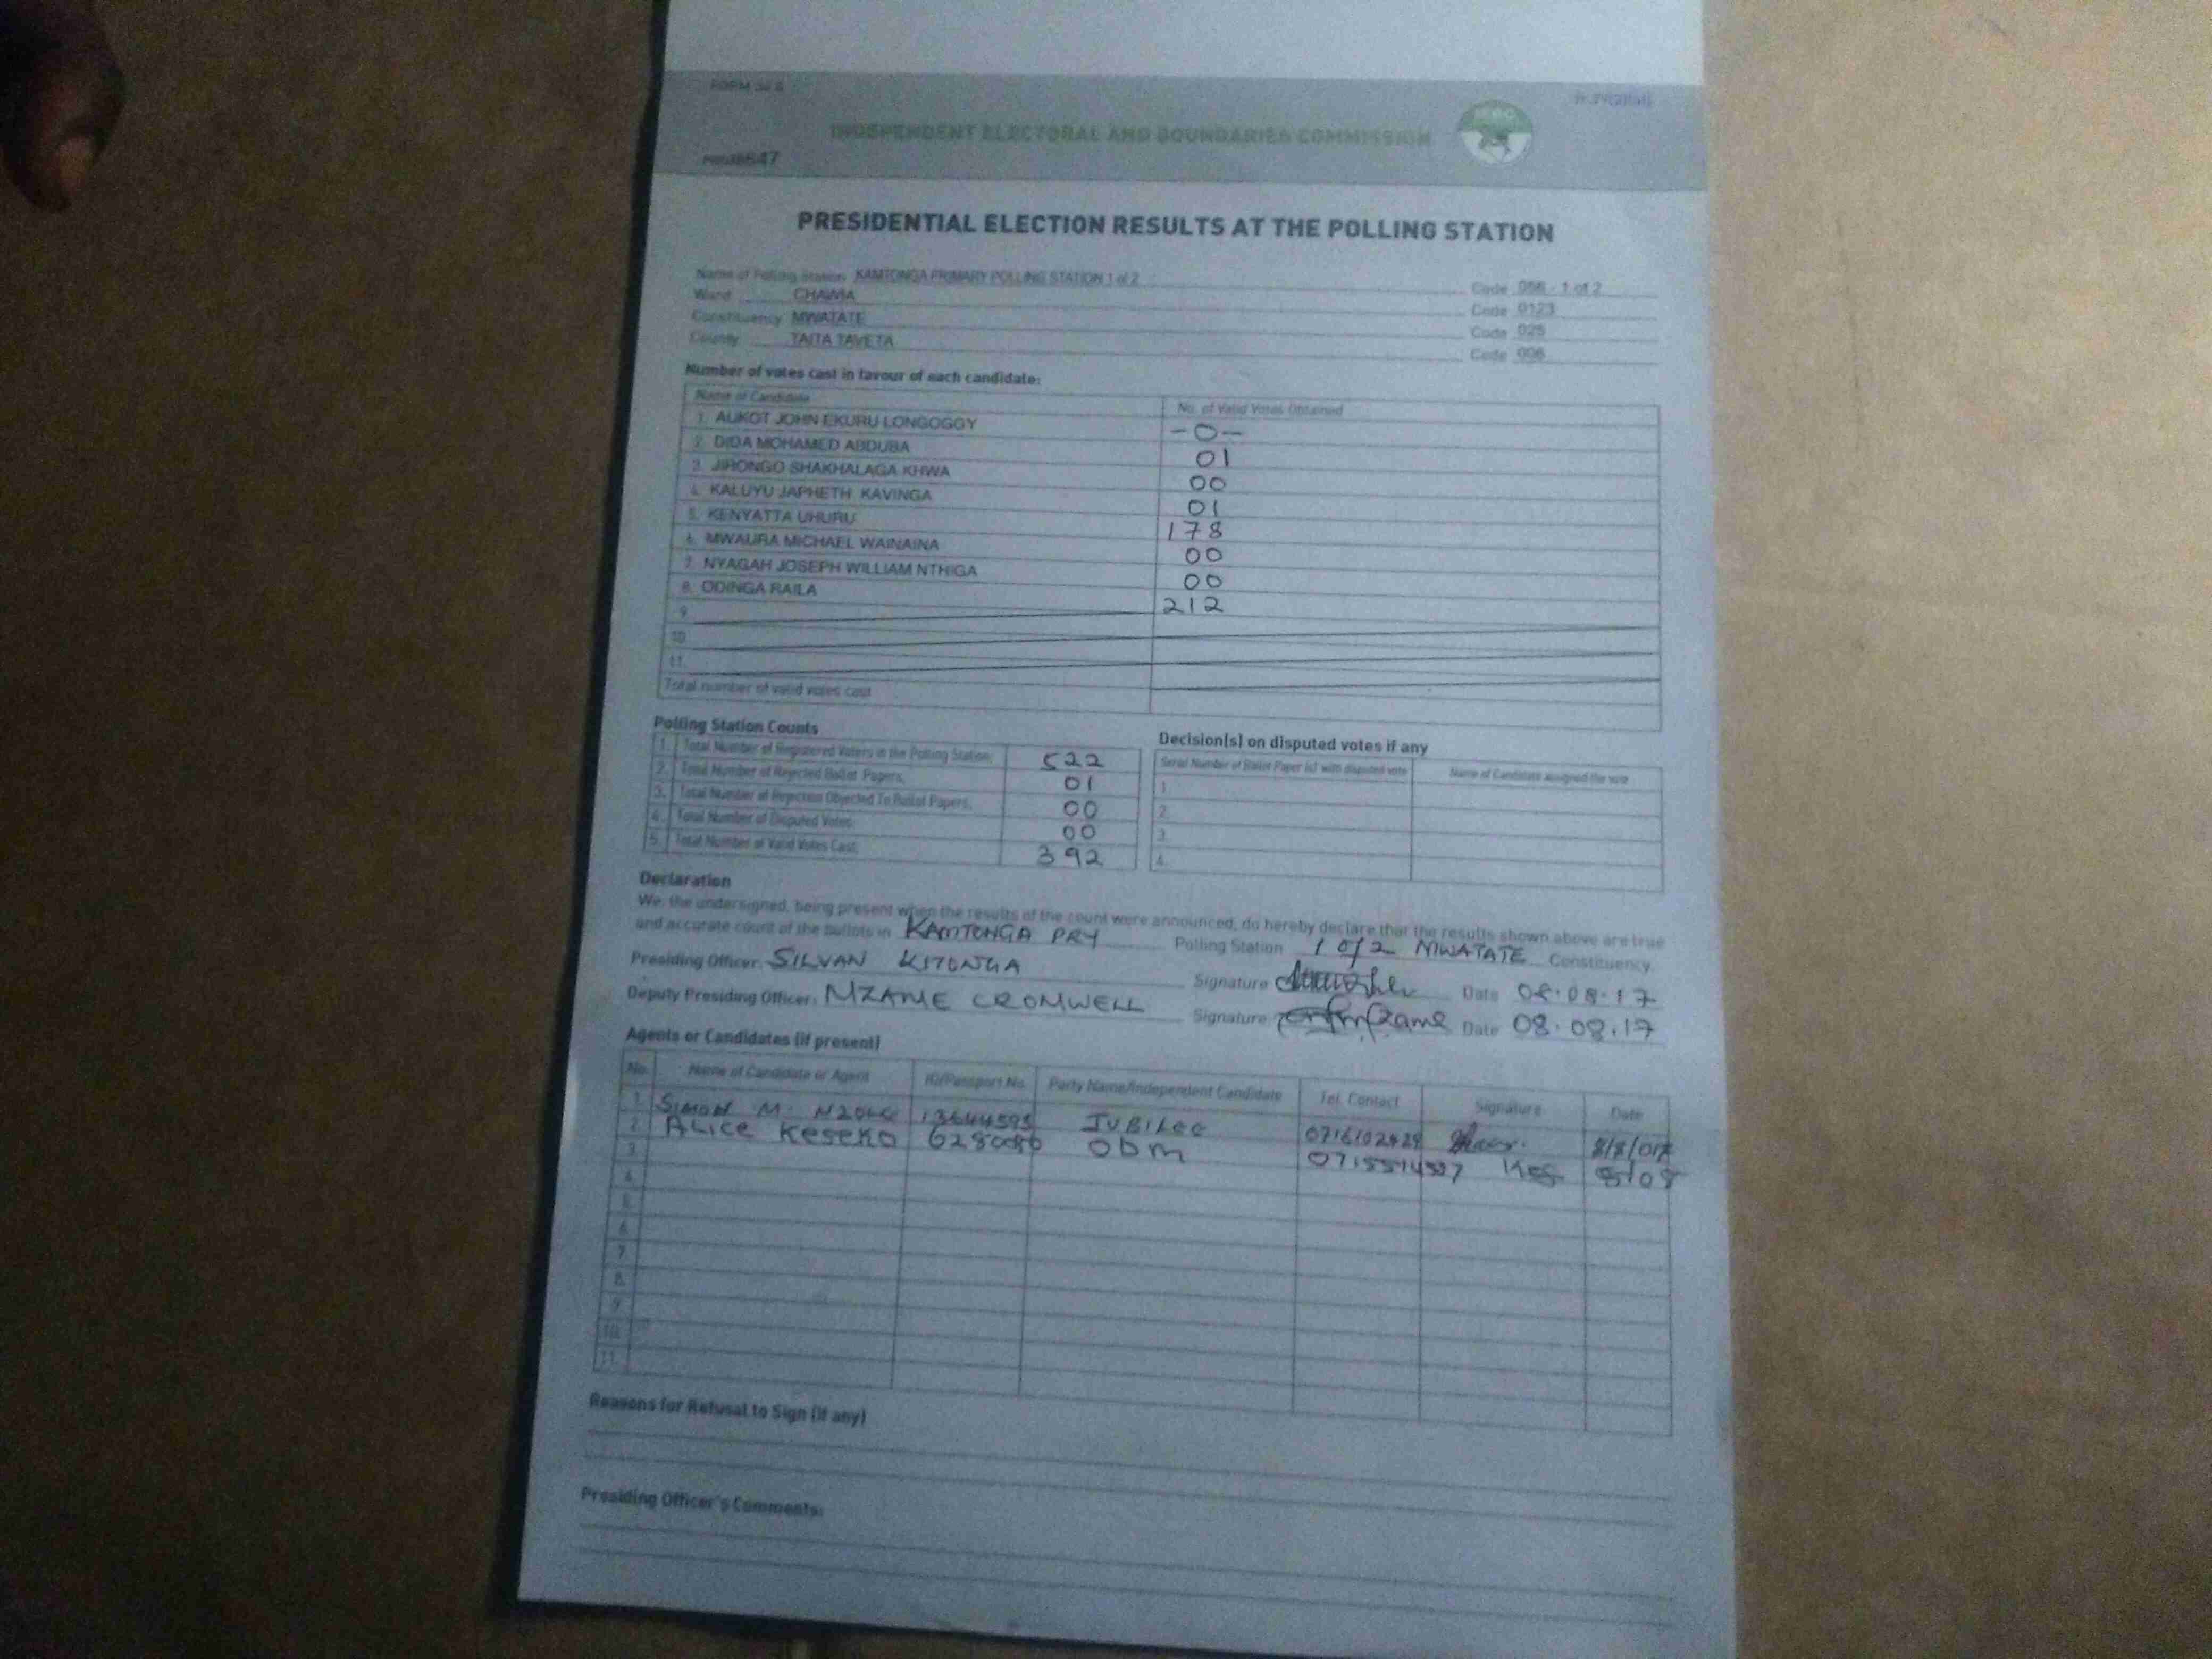 FORM 34 A
INDEPENDENT ELECTORAL AND BOUNDARIES COMMISSION
PRESIDENTIAL ELECTION RESULTS AT THE POLLING STATION
Name of Polling Station KAMTONGA PRIMARY POLLING STATION 1 of 2 Code 056 - 1 of 2
Ward CHAWIA Code 0123
Constituency MWATATE Code 025
County TAITA TAVETA Code 006
Number of votes cast in favour of each candidate:
Name of Candidate No. of Valid Votes Obtained
1. AUKOT JOHN EKURU LONGOGGY -0-
2. DIDA MOHAMED ABDUBA 01
3. JIRONGO SHAKHALAGA KHWA 00
4. KALUYU JAPHETH KAVINGA 01
5. KENYATTA UHURU 178
6. MWAURA MICHAEL WAINAINA 00
7. NYAGAH JOSEPH WILLIAM NTHIGA 00
8. ODINGA RAILA 212
9
10
11.
Total number of valid votes cast
Polling Station Counts
1. Total Number of Registered Voters in the Polling Station 522
2. Total Number of Rejected Ballot Papers, 01
3. Total Number of Rejection Objected To Ballot Papers, 00
4. Total Number of Disputed Votes 00
5. Total Number of Valid Votes Cast, 392
Decision(s) on disputed votes if any
Serial Number of Ballot Paper (s) with disputed vote Name of Candidate assigned the vote
1
2.
3.
4.
Declaration
We, the undersigned, being present when the results of the count were announced, do hereby declare that the results shown above are true
and accurate count of the ballots in KAMTONGA PRY Polling Station 1 of 2 MWATATE Constituency
Presiding Officer: SILVAN KITONGA Signature Date 08.08.17
Deputy Presiding Officer: MZAME CROMWELL Signature Date 08.08.17
Agents or Candidates (if present)
No. Name of Candidate or Agent ID/Passport No. Party Name/Independent Candidate Tel. Contact Signature Date
1 SIMON M. 13644595 JUBILEE 0716102429
2 ALICE KESEKO ODM 8/08
3
4.
5.
6
7.
8.
9
10.
11.
Reasons for Refusal to Sign (if any)
Presiding Officer's Comments: